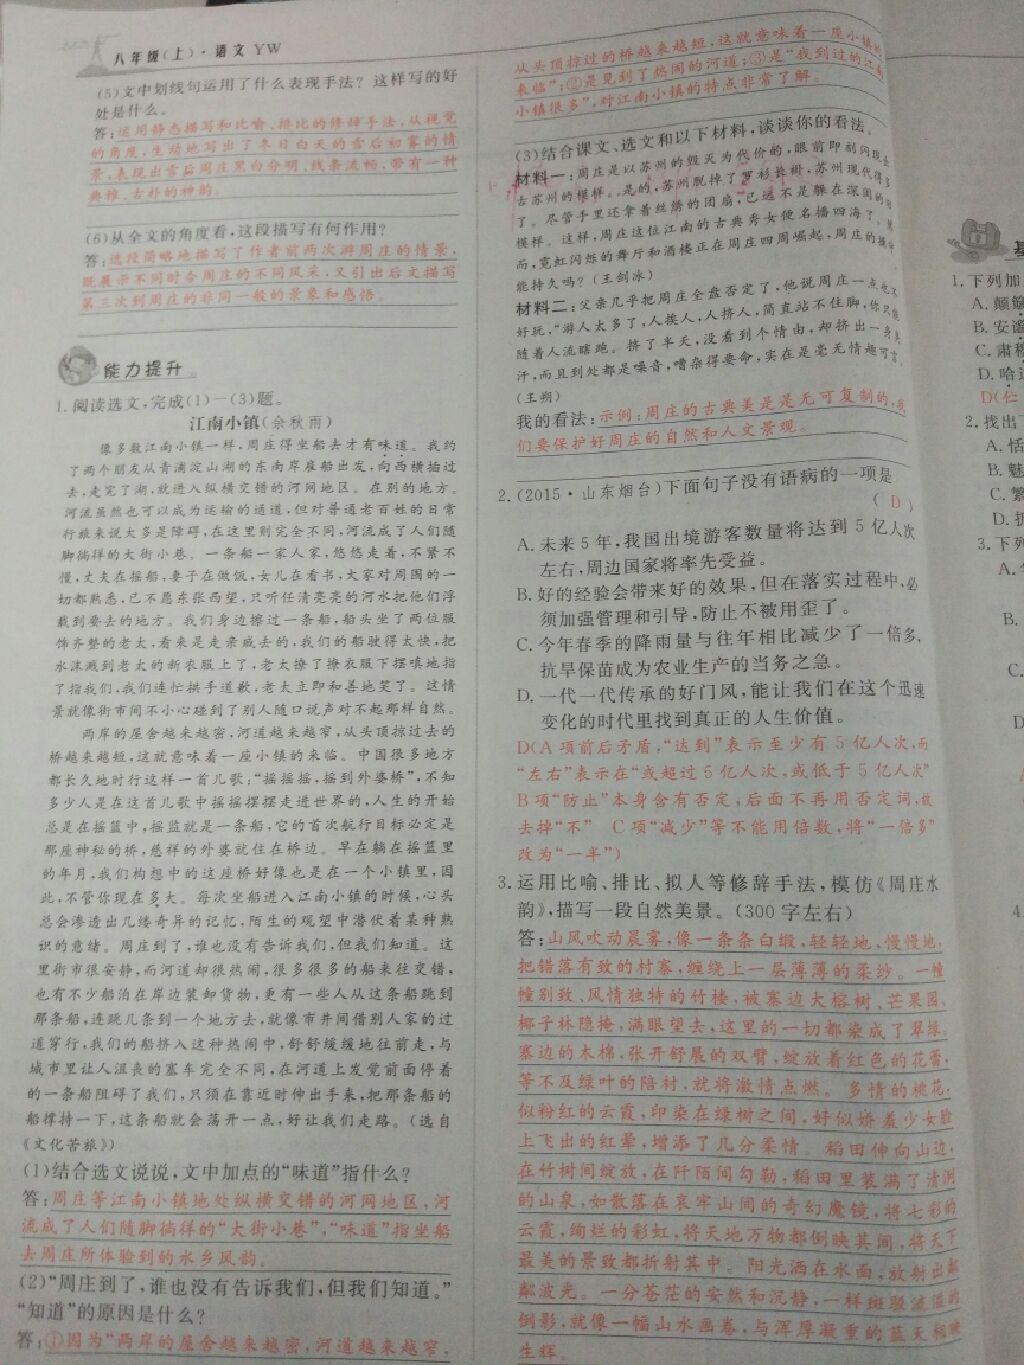 八年级(上)·语文 YW
(5)文中划线句运用了什么表现手法？这样写的好
处是什么。
答:运用静态描写和比喻、排比的修辞手法,从视觉
的角度,生动地写出了冬日白天的雪后初霁的情
景,表现出雪后周庄黑白分明、线条流畅,带有一种
典雅、古朴的神韵。
(6)从全文的角度看,这段描写有何作用?
答:选段简略地描写了作者前两次游周庄的情景,
既展示不同时令周庄的不同风采,又引出后文描写
第三次到周庄的非同一般的景象和感悟。
能力提升
1.阅读选文,完成(1)—(3)题。
江南小镇(余秋雨)
像多数江南小镇一样,周庄得坐船去才有味道。我约
了两个朋友从青浦淀山湖的东南岸雇船出发,向西横插过
去,走完了湖,就进入纵横交错的河网地区。在别的地方,
河流虽然也可以成为运输的通道,但对普通老百姓的日常
行旅来说大多是障碍,在这里则完全不同,河流成了人们随
脚徜徉的大街小巷。一条船一家人家,悠悠走着,不紧不
慢,丈夫在摇船,妻子在做饭,女儿在看书,大家对周围的一
切都熟悉,已不愿东张西望,只听任清亮亮的河水把他们浮
载到要去的地方。我们身边擦过一条船,船头坐了两位服
饰齐整的老太,看来是走亲戚去的,我们的船驶得太快,把
水沫溅到老太的新衣服上了,老太撩了撩衣服下摆嗔地指
了指我们,我们连忙拱手道歉,老太立即和善地笑了。这情
景就像街市间不小心碰到了别人随口说声对不起那样自然。
两岸的屋舍越来越密,河道越来越窄,从头顶掠过去的
桥越来越短,这就意味着一座小镇的来临。中国很多地方
都长久地时行这样一首儿歌:“摇摇摇,摇到外婆桥”,不知
多少人是在这首儿歌中摇摇摆摆走进世界的,人生的开始
总是在摇篮中,摇监就是一条船,它的首次航行目标必定是
那座神秘的桥,慈祥的外婆就住在桥边。早在躺在摇篮里
的年月,我们构想中的这座桥好像也是在一个小镇里,因
此,不管你现在多大。每次坐船进入江南小镇的时候,心头
总会渗透出几缕奇异的记忆,陌生的观望中潜伏着某种熟
识的意绪。周庄到了,谁也没有告诉我们,但我们知道。这
里街市很安静,而河道却很热闹,很多很多的船来往交错,
也有不少船泊在岸边装卸货物,更有一些人从这条船跳到
那条船,连跳几条到一个地方去,就像市井间借别人家的过
道穿行,我们的船挤入这种热闹中,舒舒缓缓地往前走,与
城市里让人沮丧的塞车完全不同,在河道上发觉前面停着
的一条船阻碍了我们,只须在靠近时伸出手来,把那条船的
船撑持一下,这条船就会荡开一点,好让我们走路。(选自
《文化苦旅》)
(1)结合选文说说,文中加点的“味道”指什么?
答:周庄等江南小镇地处纵横交错的河网地区,河
流成了人们随脚徜徉的“大街小巷”,“味道”指坐船
去周庄所体验到的水乡风韵。
(2)“周庄到了,谁也没有告诉我们,但我们知道。”
“知道”的原因是什么?
答:①因为“两岸的屋舍越来越密,河道越来越窄,
从头顶掠过的桥越来越短,这就意味着一座小镇的
来临”;②是见到了热闹的河道;③是“我到过的江南
小镇很多”,对江南小镇的特点非常了解。
(3)结合课文、选文和以下材料,谈谈你的看法。
材料一:周庄是以苏州的毁灭为代价的,眼前即刻闪现出
古苏州的模样。是的,苏州脱掉了罗衫长褂,苏州现代得多
了。尽管手里还拿着丝绣的团扇,已远不是躲在深闺的旧
模样。这样,周庄这位江南的古典秀女便名播四海了。然
而,霓虹闪烁的舞厅和酒楼正在周庄四周崛起,周庄的操守
能持久吗?(王剑冰)
材料二:父亲几乎把周庄全盘否定了,他说周庄一点也不
好玩,“游人太多了,人挨人,人挤人,简直站不住脚,你只能
随着人流瞎跑。挤了半天,没看到个情由,却挤出一身臭
汗,而且到处都是噪音,嘈杂得要命,实在是毫无情趣可言。
(王朔)
我的看法:示例:周庄的古典美是是无可复制的,我
们要保护好周庄的自然和人文景观。
2.(2015·山东烟台)下面句子没有语病的一项是
( D )
A.未来5年,我国出境游客数量将达到5亿人次
左右,周边国家将率先受益。
B.好的经验会带来好的效果,但在落实过程中,必
须加强管理和引导,防止不被用歪了。
C.今年春季的降雨量与往年相比减少了一倍多,
抗旱保苗成为农业生产的当务之急。
D.一代一代传承的好门风,能让我们在这个迅速
变化的时代里找到真正的人生价值。
D(A项前后矛盾,“达到”表示至少有5亿人次,而
“左右”表示在“或超过5亿人次,或低于5亿人次”
B项“防止”本身含有否定,后面不再用否定词,故
去掉“不” C项“减少”等不能用倍数,将“一倍多”
改为“一半”)
3.运用比喻、排比、拟人等修辞手法,模仿《周庄水
韵》,描写一段自然美景。(300字左右)
答:山风吹动晨雾,像一条条白缎,轻轻地、慢慢地,
把错落有致的村寨,缠绕上一层薄薄的柔纱。一幢
幢别致、风情独特的竹楼,被寨边大榕树、芒果园、
椰子林隐掩,满眼望去,这里的一切都染成了翠绿。
寨边的木棉,张开舒展的双臂,绽放着红色的花蕾,
等不及绿叶的陪衬,就将激情点燃。多情的桃花,
似粉红的云霞,印染在绿树之间,好似娇羞少女脸
上飞出的红晕,增添了几分柔情。稻田伸向山边,
在竹树间绽放,在阡陌间勾勒,稻田里装满了清洌
的山泉,如散落在哀牢山间的奇幻魔镜,将七彩的
云霞,绚烂的彩虹,将天地万物都倒映其间,将天下
最美的景致都折射其中。阳光洒在水面,放射出粼
粼波光。一分苍茫的安然和沉静,一样斑驳流溢的
倒影,就像一幅山水画卷,与浑厚凝重的蓝天相映
生辉。
1.下列加
A.颠
B.安
C.肃
D.哈
D(
2.找出
A.恬
B.魅
C.繁
D.
3.下列
A.
B.
C.
D
4